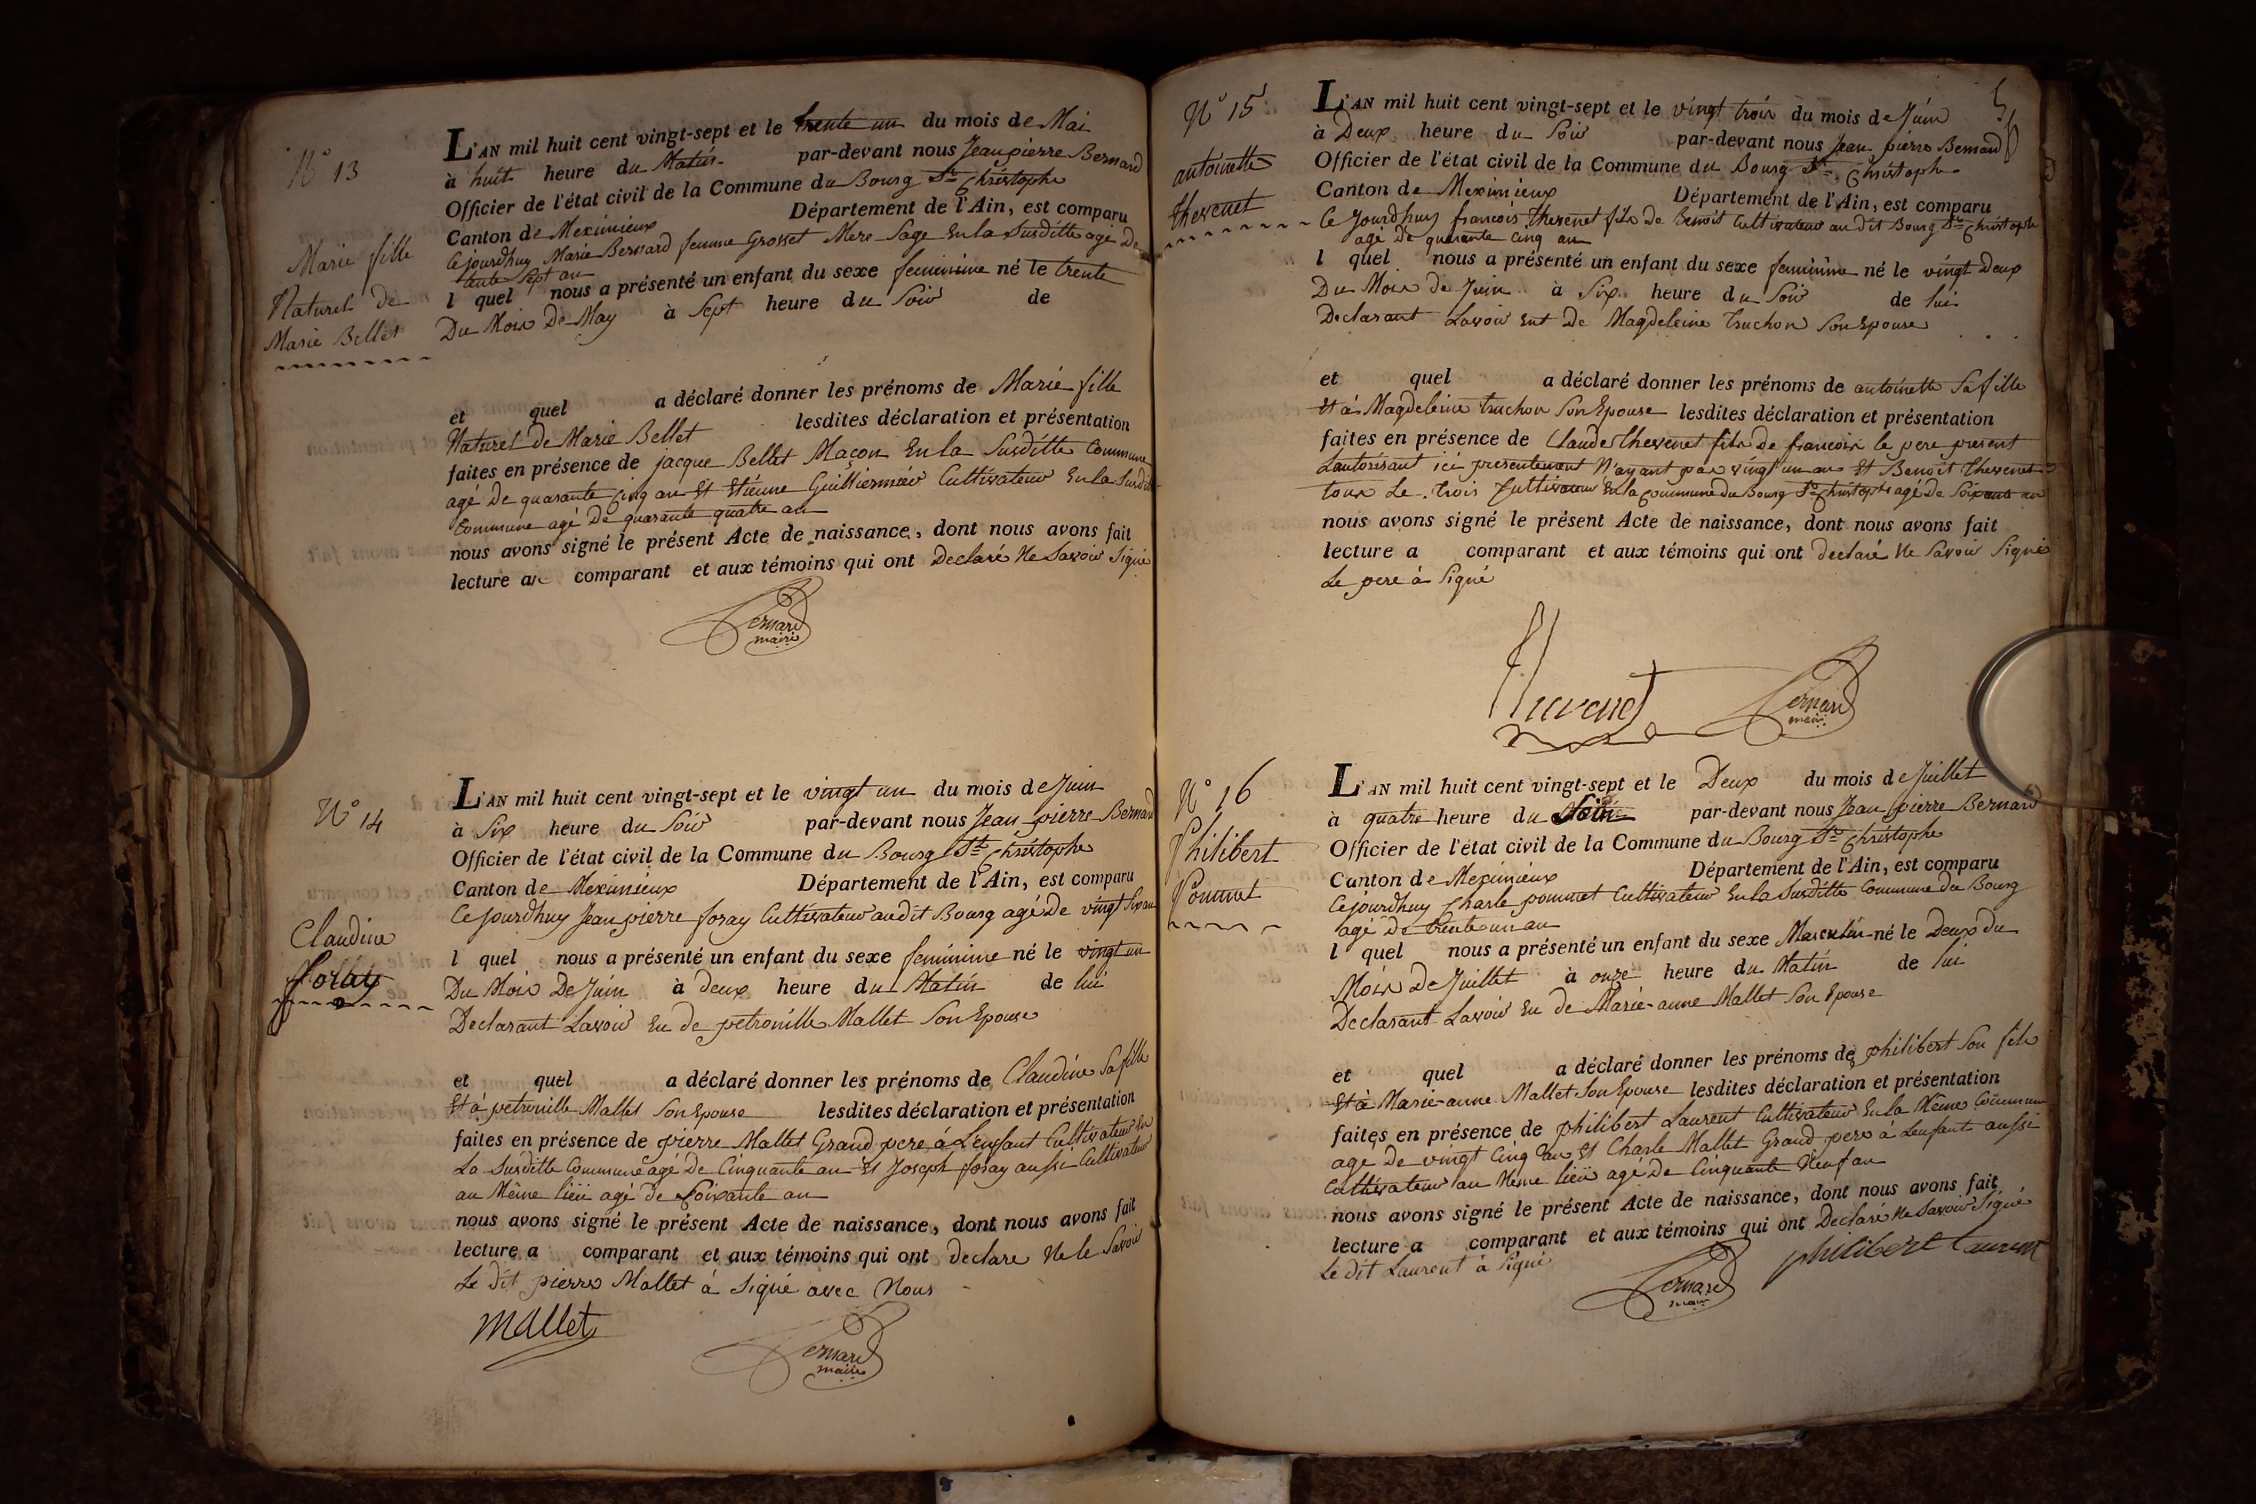 N° 13
Marie fille
Naturel de
Marie Bellet
L'AN mil huit cent vingt-sept et le trente un du mois de Mai
à huit heure du Matin par-devant nous Jean pierre Bernard
Officier de l'état civil de la Commune du Bourg St Christophe
Canton de Meximieux Département de l'Ain, est comparu
Cejourdhuy Marie Bernard femme Grosset Mere Sage En la Susditte agé De
trente Sept an
l quel nous a présenté un enfant du sexe feminime né le trente
Du Mois De May à Sept heure du Soir de
et quel a déclaré donner les prénoms de Marie fille
Naturel de Marie Bellet lesdites déclaration et présentation
faites en présence de jacque Bellet Maçon En la Susditte Commune
agé De quarante Cinq an Et Etienne Guilliermier Cultivateur En la Susditte
Commune agé De quarante quatre an
nous avons signé le présent Acte de naissance, dont nous avons fait
lecture au comparant et aux témoins qui ont Declaré Ne Savoir Signé
Bernard
maire
N° 14
Claudine
foray
L'AN mil huit cent vingt-sept et le vingt un du mois de Juin
à Six heure du Soir par-devant nous Jean pierre Bernard
Officier de l'état civil de la Commune du Bourg St Christophe
Canton de Meximieux Département de l'Ain, est comparu
Cejourdhuy Jean pierre foray Cultivateur audit Bourg agé De vingt Six an
l quel nous a présenté un enfant du sexe feminime né le vingt un
Du Mois De Juin à deux heure du Matin de lui
Declarant Lavoir Eu de petronille Mallet Son Epouse
et quel a déclaré donner les prénoms de Claudine Sa fille
Et à petronille Mallet Son Epouse lesdites déclaration et présentation
faites en présence de pierre Mallet Grand pere à Lenfant Cultivateur En
La Susditte Commune agé De Cinquante an Et Joseph foray aussi Cultivateur
au Même lieü agé de Soixante an
nous avons signé le présent Acte de naissance, dont nous avons fait
lecture a comparant et aux témoins qui ont declare Ne le Savoir
Le dit pierre Mallet à signé avec Nous
Mallet
Bernard
maire
N° 15
antoinette
thevenet
L'AN mil huit cent vingt-sept et le vingt trois du mois de Juin
à Deux heure du Soir par-devant nous Jean pierre Bernard
Officier de l'état civil de la Commune du Bourg St Christophe
Canton de Meximieux Département de l'Ain, est comparu
Ce Jourdhuy francois thevenet fils De Benoit Cultivateur au dit Bourg St Christophe
agé De quarante cinq an
l quel nous a présenté un enfant du sexe feminime né le vingt Deux
Du Mois de Juin à Six heure du Soir de lui
Declarant Lavoir Ent De Magdeleine truchon Son Epouse
et quel a déclaré donner les prénoms de antoinette Sa fille
Et à Magdeleine truchon Son Epouse lesdites déclaration et présentation
faites en présence de Claude thevenet fils de francois le pere present
Lautorisant ici presentement N'ayant pas vingt un an Et Benoit thevenet
tous Le trois Cultivateur En la Commune du Bourg St Christophe agé De Soixante an
nous avons signé le présent Acte de naissance, dont nous avons fait
lecture a comparant et aux témoins qui ont declaré Ne Savoir Signé
Le pere à Signé
thevenet
Bernard
maire
N° 16
Philibert
Pommet
L'AN mil huit cent vingt-sept et le Deux du mois de Juillet
à quatre heure du Soir par-devant nous Jean pierre Bernard
Officier de l'état civil de la Commune du Bourg St Christophe
Canton de Meximieux Département de l'Ain, est comparu
Cejourdhuy Charle pommet Cultivateur En la Susditte Commune du Bourg
agé De trente un an
l quel nous a présenté un enfant du sexe Masculin né le Deux du
Mois De Juillet à onze heure du Matin de lui
Declarant Lavoir Eu de Marie-anne Mallet Son Epouse
et quel a déclaré donner les prénoms de philibert Son fils
Et à Marie-anne Mallet Son Epouse lesdites déclaration et présentation
faites en présence de philibert Laurent Cultivateur En la Même Commune
agé De vingt Cinq an Et Charle Mallet Grand pere à Lenfant aussi
Cultivateur au Même lieü agé De Cinquante Neuf an
nous avons signé le présent Acte de naissance, dont nous avons fait
lecture a comparant et aux témoins qui ont Declaré Ne Savoir Signé
Le dit Laurent à Signé
Bernard
maire
philibert Laurent